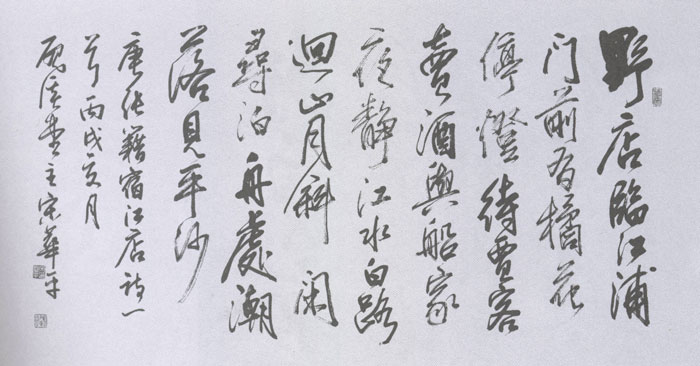 野店臨江浦
门前有橘花
停燈待賈客
賣酒與船家
夜靜江水白路
迴山月斜闲
尋泊舟處潮
落見平沙
唐张籍宿江店诗一
首丙戌夏月
主宋華平